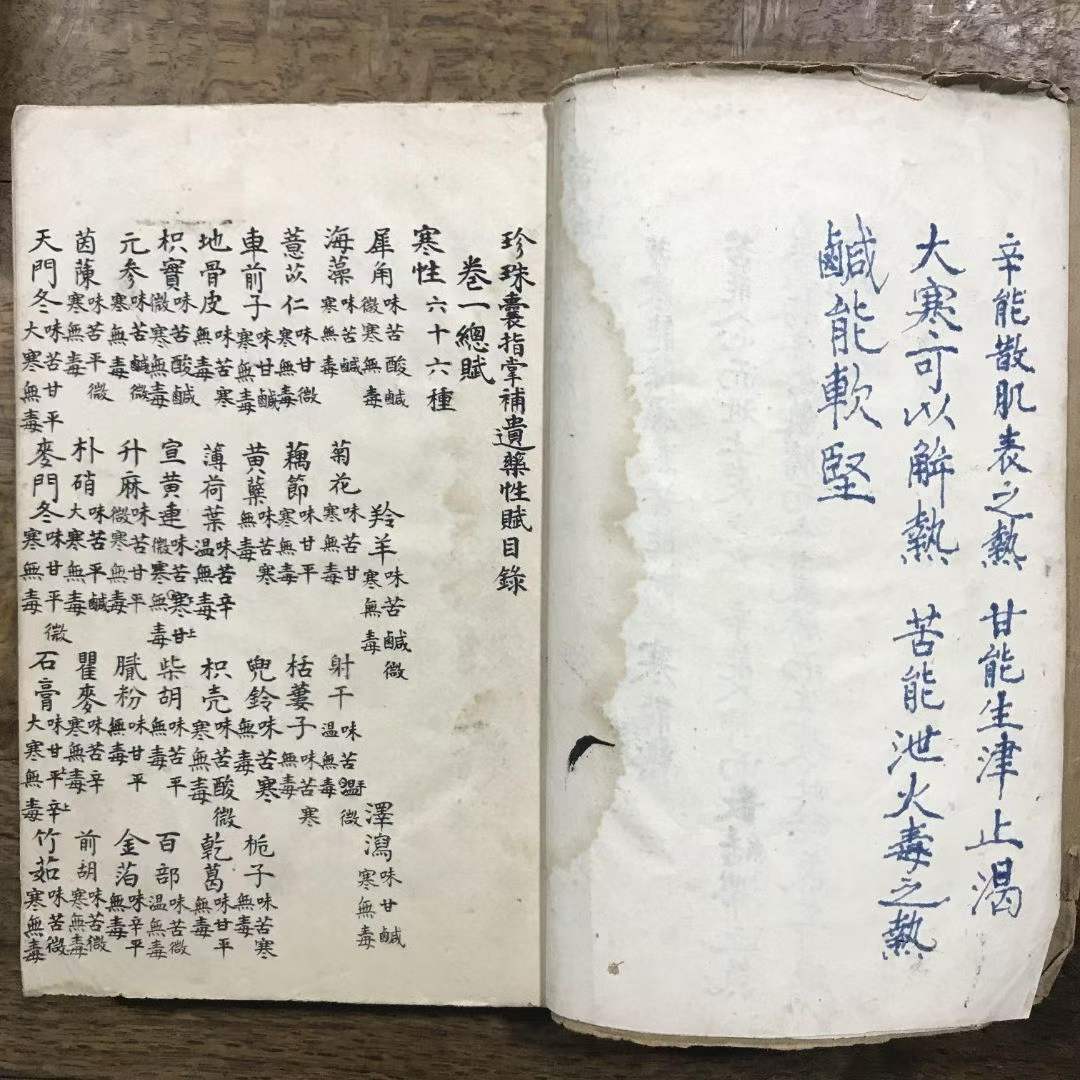 辛能散肌表之熱 甘能生津止渴
大寒可以解熱 苦能泄火毒之熱
鹹能軟堅
珍珠囊指掌補遺藥性賦目錄
卷一總賦
寒性六十六種
犀角味苦酸鹹微寒無毒 羚羊味苦鹹微寒無毒 澤瀉味甘鹹寒無毒
海藻味苦鹹寒無毒 菊花味苦甘寒無毒 射干味苦微溫無毒
薏苡仁味甘微寒無毒 藕節味甘平寒無毒 栝蔞子味苦寒無毒 梔子味苦寒無毒
車前子味甘鹹寒無毒 黃蘗味苦寒無毒 兜鈴味苦寒無毒 乾葛味甘平無毒
地骨皮味苦寒無毒 薄荷葉味苦辛溫無毒 枳壳味苦酸微寒無毒 百部味苦微溫無毒
枳實味苦酸鹹微寒無毒 宣黃連味苦寒微寒無毒 柴胡味苦平無毒 金箔味辛平無毒
元參味苦鹹微寒無毒 升麻味苦甘平微寒無毒 膩粉味甘平無毒 前胡味苦微寒無毒
茵蔯味苦平微寒無毒 朴硝味苦平鹹大寒無毒 瞿麥味苦辛寒無毒 竹茹味苦微寒無毒
天門冬味苦甘平大寒無毒 麥門冬味甘平微寒無毒 石膏味甘平辛大寒無毒